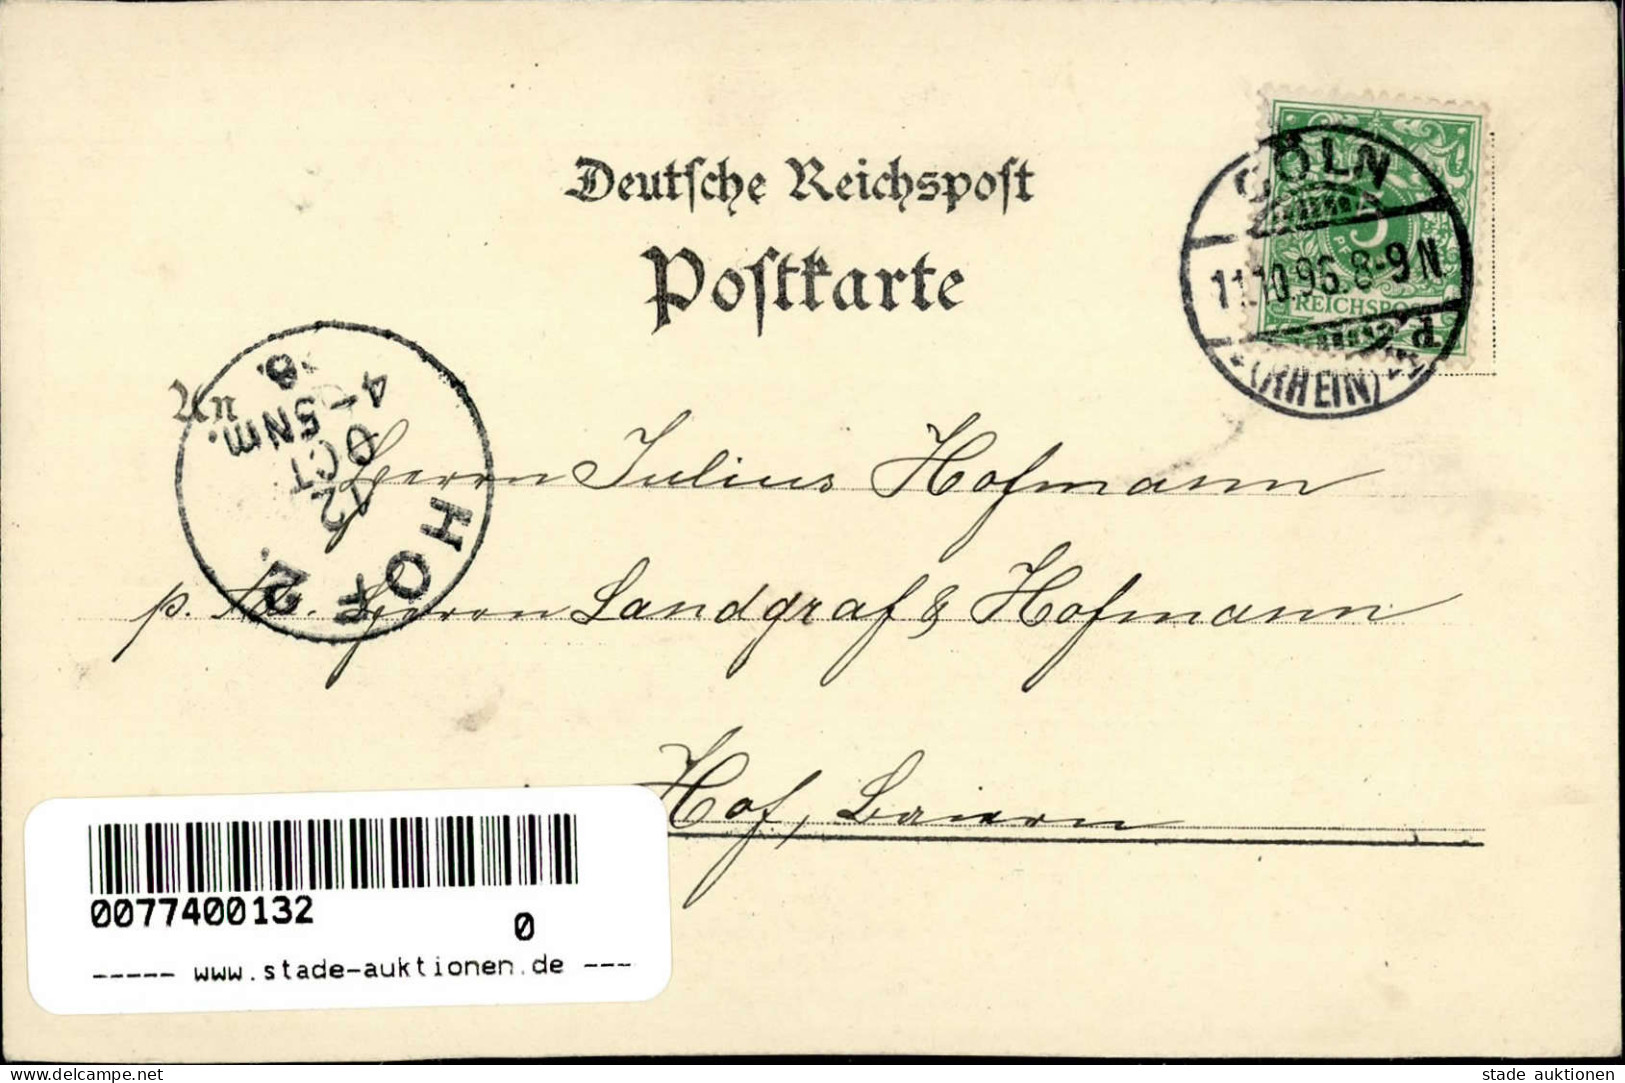 Deutsche Reichspost
Postkarte
CÖLN
11.10.96. 8-9N
*(RHEIN)*
5
REICHSPOST
An
HOF 2.
12
OCT
4-5Nm.
Herrn Julius Hofmann
p. Ad. Herrn Landgraf & Hofmann
Hof, Baiern
0077400132
0
----- www.stade-auktionen.de ---
stade auktionen